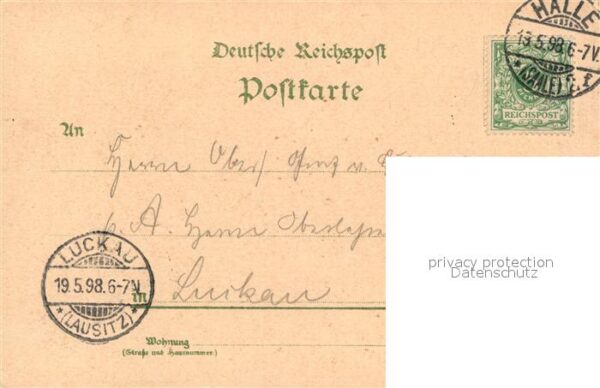 HALLE
19.5.98.6-7N.
*(SAALE)
Deutsche Reichspost
Postkarte
REICHSPOST
An
Herrn
A. Herrn
privacy protection
Datenschutz
LUCKAU
19.5.98.6-7N
*(LAUSITZ)*
in Luckau
Wohnung
(Straße und Hausnummer)